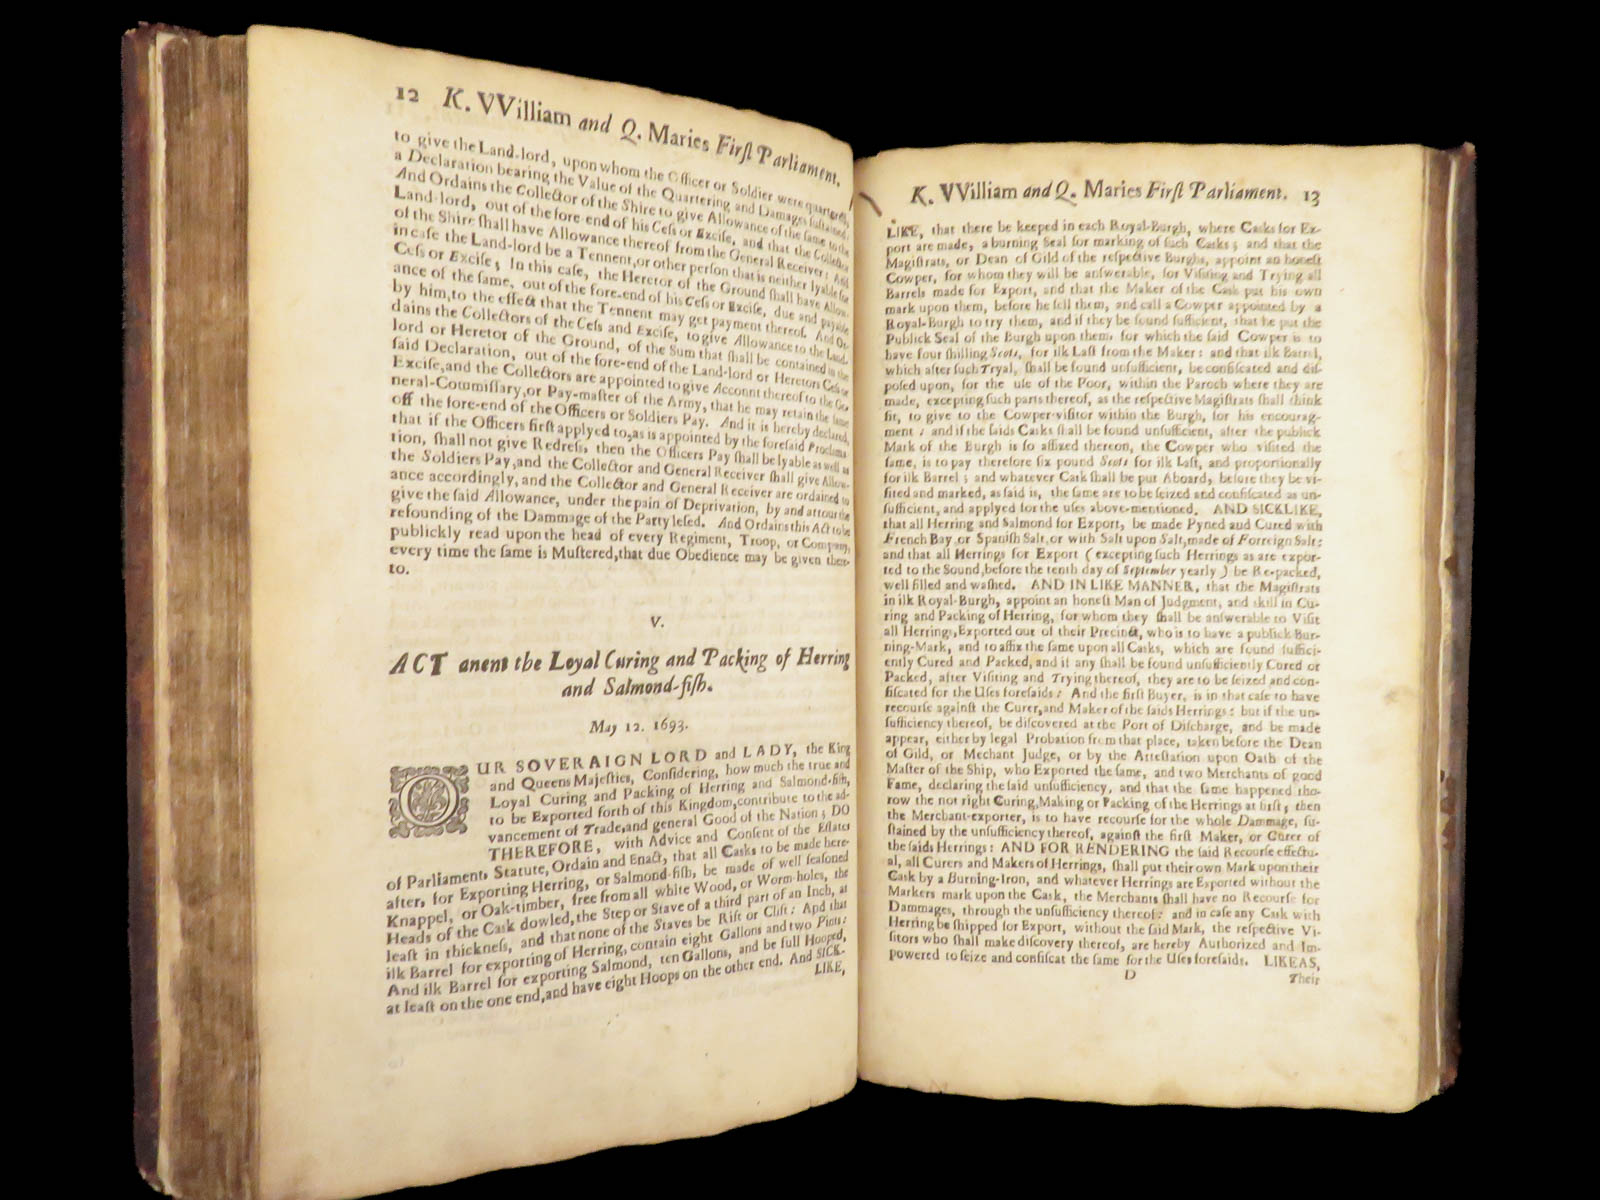 12 K. VVilliam and Q. Maries Firſt Parliament.
to give the Land-lord, upon whom the Officer or Soldier were quartered,
a Declaration bearing the Value of the Quartering and Damages ſuſtained:
And Ordains the Collector of the Shire to give Allowance of the ſame to the
Land-lord, out of the fore-end of his Ceſs or Exciſe, and that the Collector
of the Shire ſhall have Allowance thereof from the General Receiver: And
in caſe the Land-lord be a Tennent, or other perſon that is neither lyable for
Ceſs or Exciſe; In this caſe, the Heretor of the Ground ſhall have Allow-
ance of the ſame, out of the fore-end of his Ceſs or Exciſe, due and payable
by him, to the effect that the Tennent may get payment thereof. And Or-
dains the Collectors of the Ceſs and Exciſe, to give Allowance to the Land-
lord or Heretor of the Ground, of the Sum that ſhall be contained in the
ſaid Declaration, out of the fore-end of the Land-lord or Heretors Ceſs or
Exciſe, and the Collectors are appointed to give Account thereof to the Ge-
neral-Commiſſary, or Pay-maſter of the Army, that he may retain the ſame
off the fore-end of the Officers or Soldiers Pay. And it is hereby declared,
that if the Officers firſt applyed to, as is appointed by the foreſaid Proclama-
tion, ſhall not give Redreſs, then the Officers Pay ſhall be lyable as well as
the Soldiers Pay, and the Collector and General Receiver ſhall give Allow-
ance accordingly, and the Collector and General Receiver are ordained to
give the ſaid Allowance, under the pain of Deprivation, by and attour the
refounding of the Dammage of the Party leſed. And Ordains this Act to be
publickly read upon the head of every Regiment, Troop, or Company,
every time the ſame is Muſtered, that due Obedience may be given there-
to.
V.
ACT anent the Loyal Curing and Packing of Herring
and Salmond-fiſh.
May 12. 1693.
OUR SOVERAIGN LORD and LADY, the King
and Queens Majeſties, Conſidering, how much the true and
Loyal Curing and Packing of Herring and Salmond-fiſh,
to be Exported forth of this Kingdom, contribute to the ad-
vancement of Trade, and general Good of the Nation; DO
THEREFORE, with Advice and Conſent of the Eſtates
of Parliament, Statute, Ordain and Enact, that all Casks to be made here-
after, for Exporting Herring, or Salmond-fiſh, be made of well ſeaſoned
Knappel, or Oak-timber, free from all white Wood, or Worm-holes, the
Heads of the Cask dowled, the Step or Stave of a third part of an Inch, at
leaſt in thickneſs, and that none of the Staves be Rift or Clift: And that
ilk Barrel for exporting of Herring, contain eight Gallons and two Pints:
And ilk Barrel for exporting Salmond, ten Gallons, and be full Hooped,
at leaſt on the one end, and have eight Hoops on the other end. And SICK-
LIKE,
K. VVilliam and Q. Maries Firſt Parliament. 13
LIKE, that there be keeped in each Royal-Burgh, where Casks for Ex-
port are made, a burning Seal for marking of ſuch Casks; and that the
Magiſtrats, or Dean of Gild of the reſpective Burghs, appoint an honeſt
Cowper, for whom they will be anſwerable, for Viſiting and Trying all
Barrels made for Export, and that the Maker of the Cask put his own
mark upon them, before he ſell them, and call a Cowper appointed by a
Royal-Burgh to try them, and if they be found ſufficient, that he put the
Publick Seal of the Burgh upon them, for which the ſaid Cowper is to
have four ſhilling Scots, for ilk Laſt from the Maker: and that ilk Barrel,
which after ſuch Tryal, ſhall be found unſufficient, be confiſcated and diſ-
poſed upon, for the uſe of the Poor, within the Paroch where they are
made, excepting ſuch parts thereof, as the reſpective Magiſtrats ſhall think
fit, to give to the Cowper-viſitor within the Burgh, for his encourag-
ment: and if the ſaids Casks ſhall be found unſufficient, after the publick
Mark of the Burgh is ſo affixed thereon, the Cowper who viſited the
ſame, is to pay therefore ſix pound Scots for ilk Laſt, and proportionally
for ilk Barrel; and whatever Cask ſhall be put Aboard, before they be vi-
ſited and marked, as ſaid is, the ſame are to be ſeized and confiſcated as un-
ſufficient, and applyed for the uſes above-mentioned. AND SICKLIKE,
that all Herring and Salmond for Export, be made Pyned and Cured with
French Bay, or Spaniſh Salt, or with Salt upon Salt, made of Forreign Salt:
and that all Herrings for Export (excepting ſuch Herrings as are expor-
ted to the Sound, before the tenth day of September yearly) be Re-packed,
well filled and waſhed. AND IN LIKE MANNER, that the Magiſtrats
in ilk Royal-Burgh, appoint an honeſt Man of Judgment, and skill in Cu-
ring and Packing of Herring, for whom they ſhall be anſwerable to Viſit
all Herrings, Exported out of their Precinct, who is to have a publick Bur-
ning-Mark, and to affix the ſame upon all Casks, which are found ſuffici-
ently Cured and Packed, and if any ſhall be found unſufficiently Cured or
Packed, after Viſiting and Trying thereof, they are to be ſeized and con-
fiſcated for the Uſes foreſaids: And the firſt Buyer, is in that caſe to have
recourſe againſt the Curer, and Maker of the ſaids Herrings: but if the un-
ſufficiency thereof, be diſcovered at the Port of Diſcharge, and be made
appear, either by legal Probation from that place, taken before the Dean
of Gild, or Mechant Judge, or by the Atteſtation upon Oath of the
Maſter of the Ship, who Exported the ſame, and two Merchants of good
Fame, declaring the ſaid unſufficiency, and that the ſame happened tho-
row the not right Curing, Making or Packing of the Herrings at firſt; then
the Merchant-exporter, is to have recourſe for the whole Dammage, ſu-
ſtained by the unſufficiency thereof, againſt the firſt Maker, or Curer of
the ſaids Herrings: AND FOR RENDERING the ſaid Recourſe effectu-
al, all Curers and Makers of Herrings, ſhall put their own Mark upon their
Cask by a Burning-Iron, and whatever Herrings are Exported without the
Markers mark upon the Cask, the Merchants ſhall have no Recourſe for
Dammages, through the unſufficiency thereof: and in caſe any Cask with
Herring be ſhipped for Export, without the ſaid Mark, the reſpective Vi-
ſitors who ſhall make diſcovery thereof, are hereby Authorized and Im-
powered to ſeize and confiſcat the ſame for the Uſes foreſaids. LIKEAS,
D Their